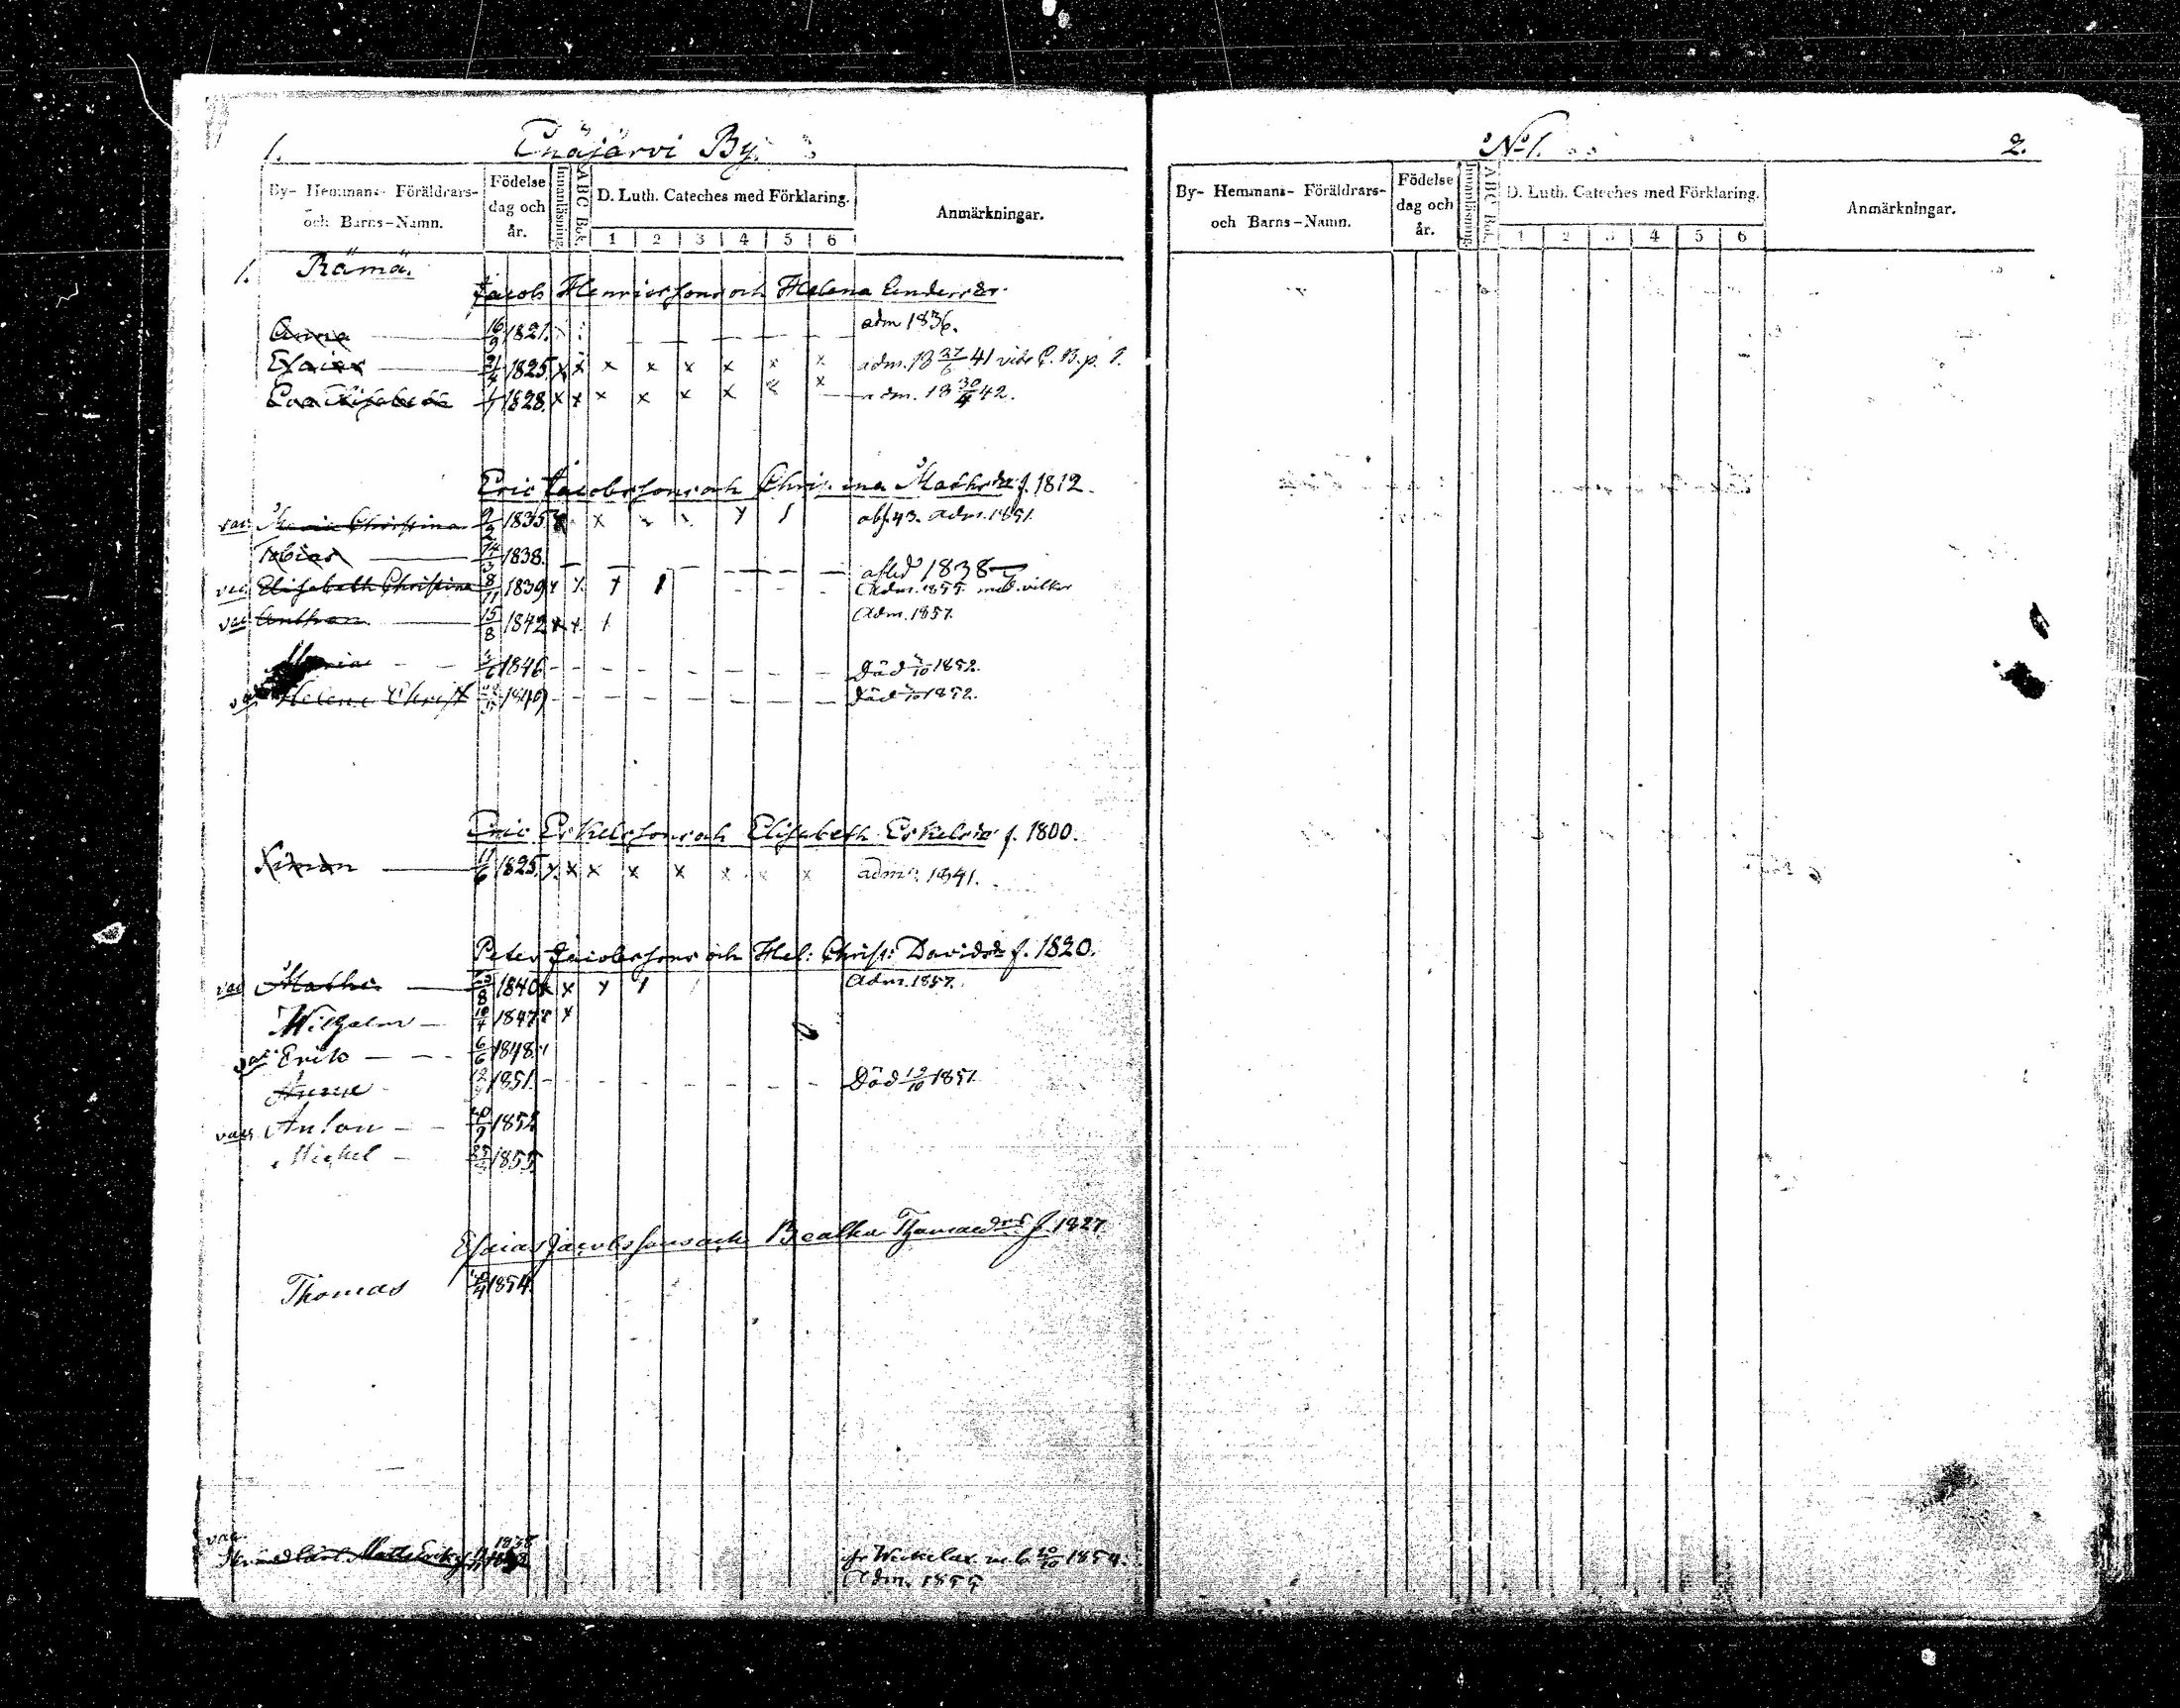 1. Enäjärvi By.
By- Hemmans- Föräldrars- och Barns-Namn.
Födelse dag och år.
Innanläsning.
ABC Bok.
D. Luth. Cateches med Förklaring.
1 2 3 4 5 6
Anmärkningar.
1. Rämä.
Jacob Henricssons och Helena
Anna 16/9 1821. adm 1836.
Esaias 21/4 1825. x x x x x x x x adm. 18 27/6 41 vide C. B. p. 1.
Eva Elisabeth 1828. x x x x x x x x adm. 18 30/4 42.
Eric Jacobssons och Christina Mathsdr f. 1812.
vac Maria Christina 9/2 1835 abs. 43. adm. 1851.
Tobias 14/3 1838. afled 1838
vac Elisabeth Christina 8/11 1839 Adm. 1855 med vilkor
vac 15/8 1842 x x Adm. 1857.
Maria 1846 Död 1852.
Helena Christ 1849 Död 1852.
Eric Eskelssons och Elisabeth Eskelsdr f. 1800.
Simon 11/6 1825. x x x x x x x x adm. 1841.
Peter Jacobssons och Hel: Christ: Davidsdr f. 1820.
vac Mathis 1840 x x Adm. 1857.
Wilhelm 10/4 1847 x x
vac Erik 6/6 1848
Anna 1851. Död 12/10 1851
vacc Anton 1852
Mickel 1855.
Esaias Jacobssons och Beatha Thomasdr f. 1827
Thomas 1854.
vac.
Matts 1838
fr Weckelax m. b. 1854.
Adm. 1855
No 1. 2.
By- Hemmans- Föräldrars- och Barns-Namn.
Födelse dag och år.
Innanläsning.
ABC Bok.
D. Luth. Cateches med Förklaring.
1 2 3 4 5 6
Anmärkningar.